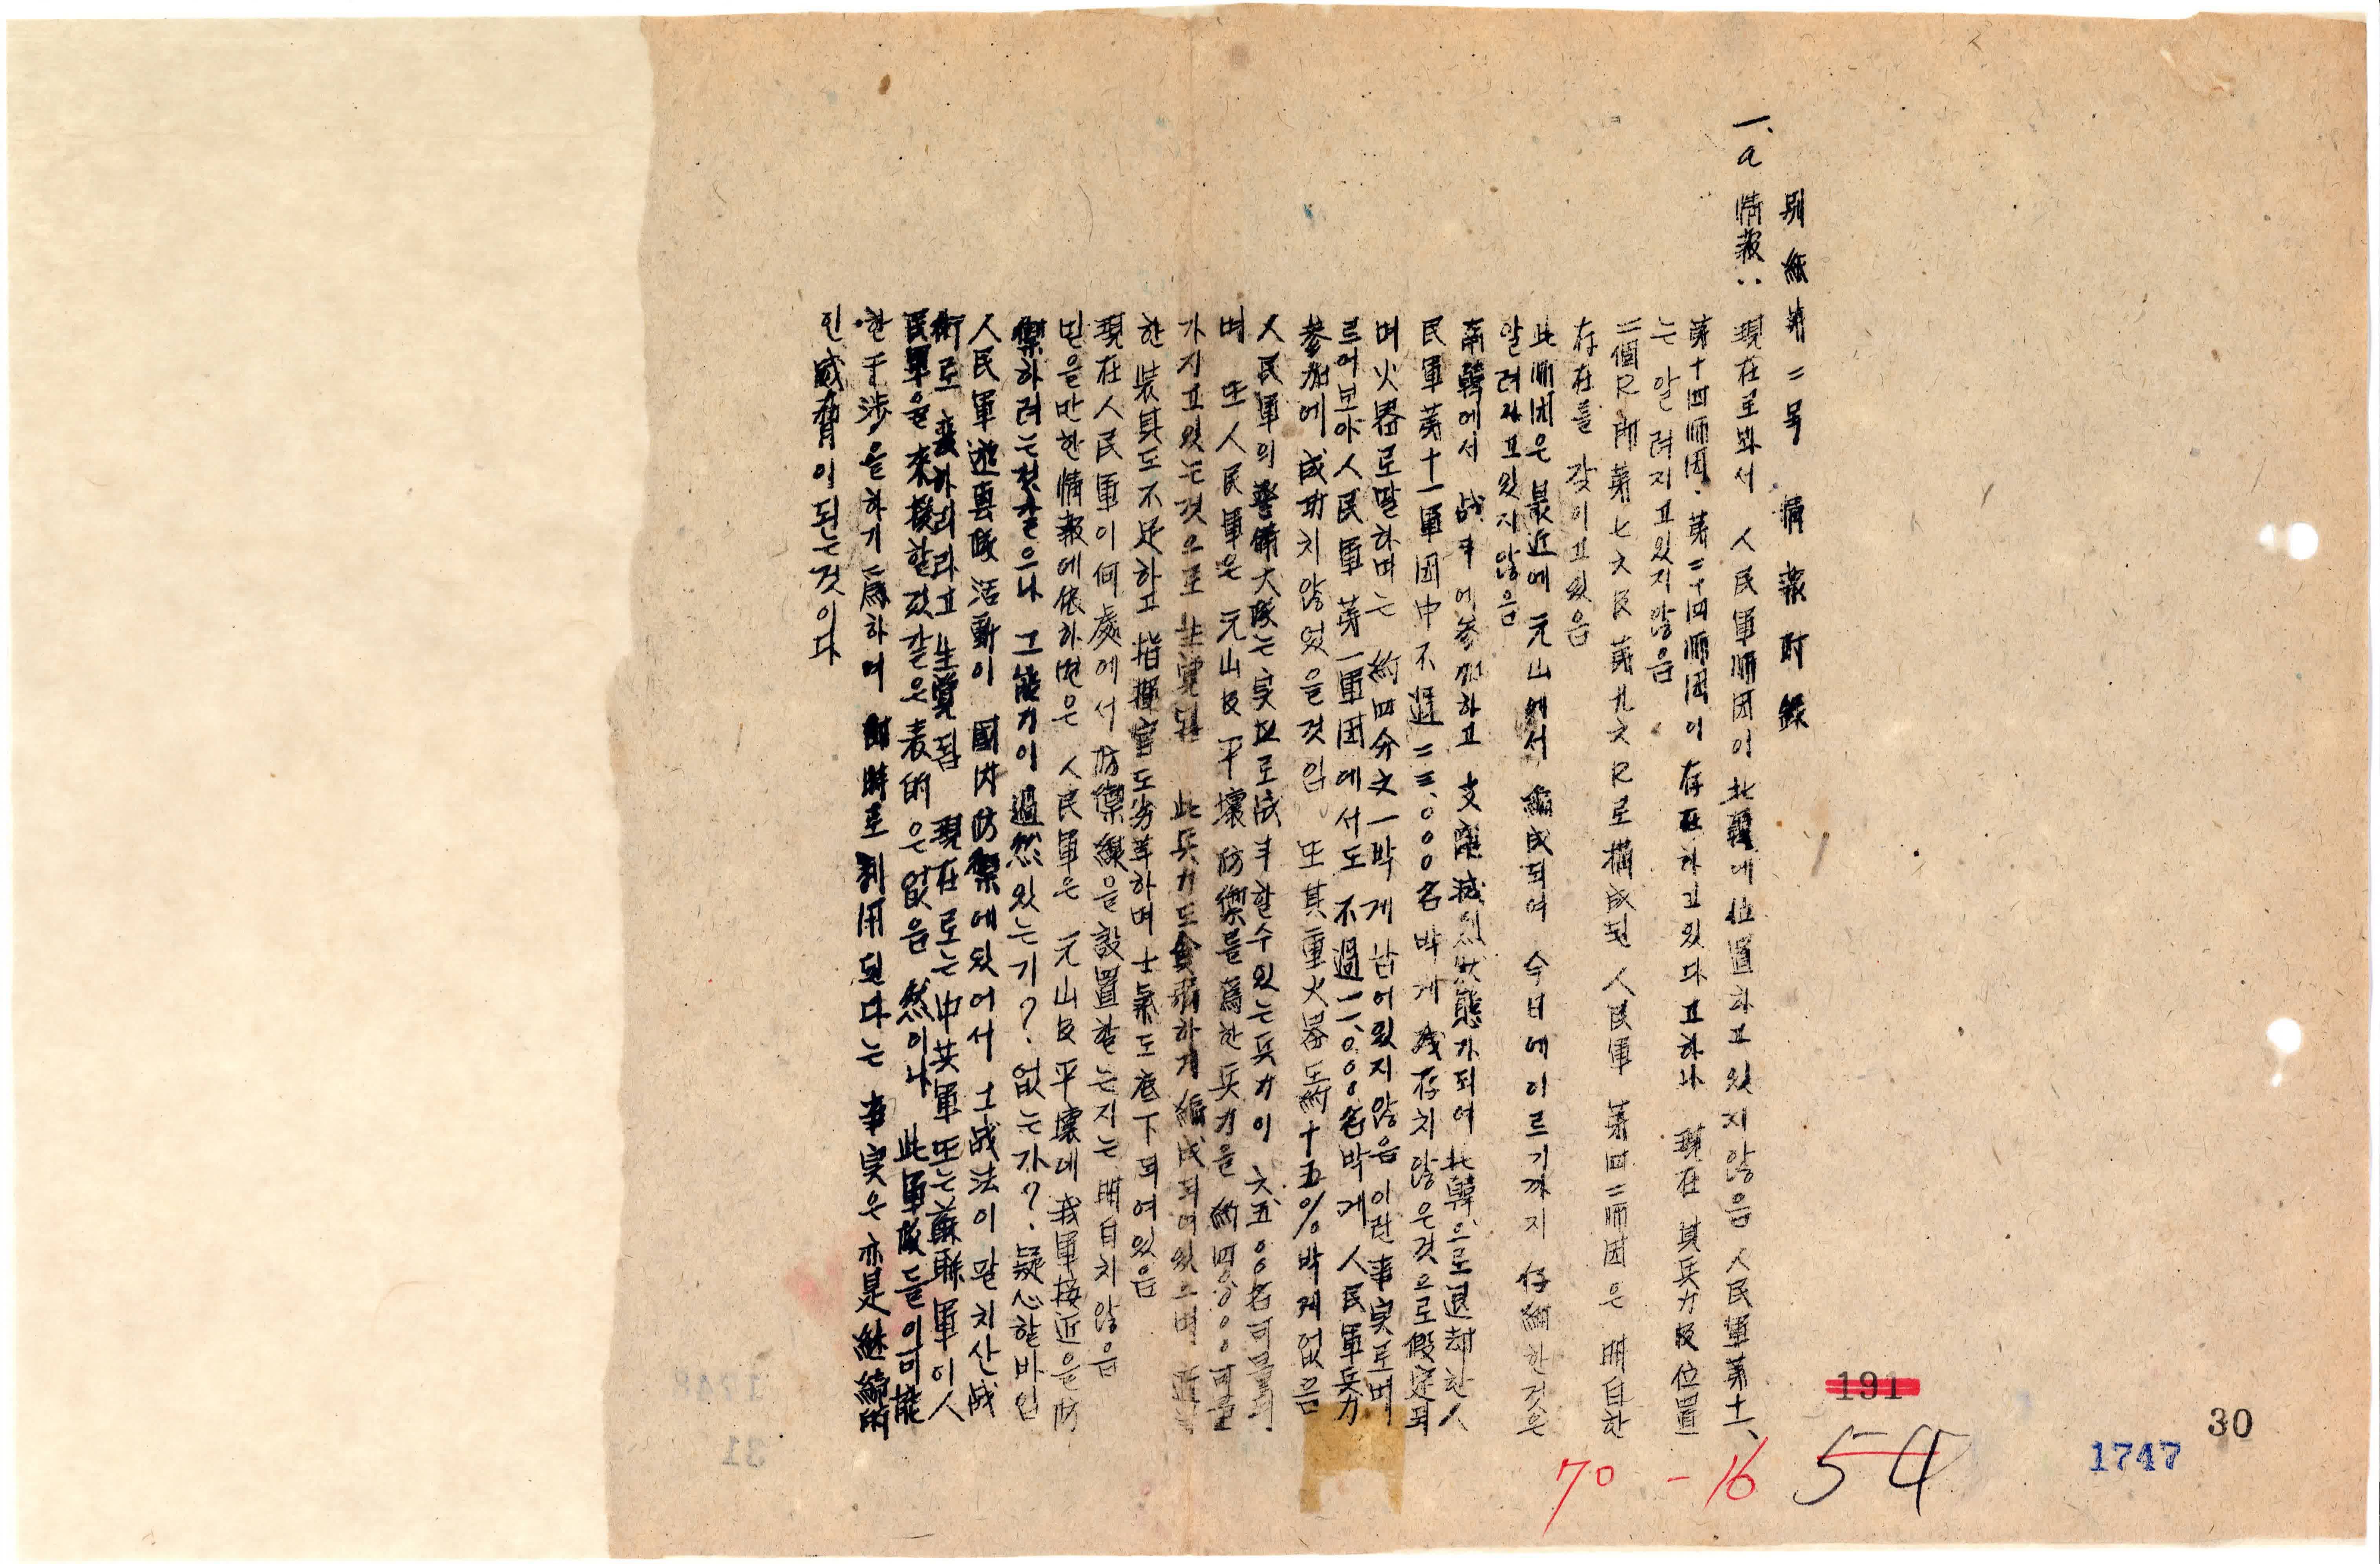 別紙 第二号 情報附錄
一、a 情報:: 現在로봐서 人民軍師団이 北韓에 位置하고 있지 않음 人民軍第十一、
第十四師団, 第二十四師団이 存在하고있다고하나 現在 其兵力及位置
는 알려지고있지않음
二個R 即 第七六R 第九六R로 構成된 人民軍 第四二師団은 明白한
存在를 갖이고있음
此師団은 最近에 元山에서 編成되여 今日에이르기까지 仔細한것은
알려지고있지않음
南韓에서 战斗에 参加하고 支離滅烈狀態가되여 北韓으로退却한人
民軍第十一軍団中 不過 二三、〇〇〇名 박게 残存치 않은것으로假定되
며 火器로말하며는 約四分之一박게 남어있지않음 이란事実로며
르어보아 人民軍第一軍団에서도 不過一一、〇〇〇名박게 人民軍兵力
参加에 成功치않었을것임 또其重火器도約十五%박게없음
人民軍의 警備大隊는 实地로战斗할수있는兵力이 六五〇〇名可量되
며 또人民軍은 元山及平壤防禦를爲한兵力을 約四〇、〇〇〇可量
가지고있는것으로 生覚됨 此兵力도貪弱하게 編成되여있으며
한 装具도不足하고 指揮官도劣等하며 士氣도底下되여있음
現在人民軍이 何處에서 防禦線을設置할는지는 明白치않음
믿을만한情報에依하면은 人民軍은 元山及平壤에我軍接近을防
禦하려는것같으나 그能力이 過然있는가?. 없는가?. 疑心할바임
人民軍遊擊隊活動이 國內防禦에있어서 主战法이 팔치산战
術로 変하리라고 生覚됨 現在로는中共軍또는蘇聯軍이人
民軍을來援할것같은 表的은없음 然이나 此軍隊들이可能
한 干涉을하기爲하며 卽時로 利用된다는 事実은 亦是 継續的
인 威脅이된는것이다
191
30
1747
70 - 16
54